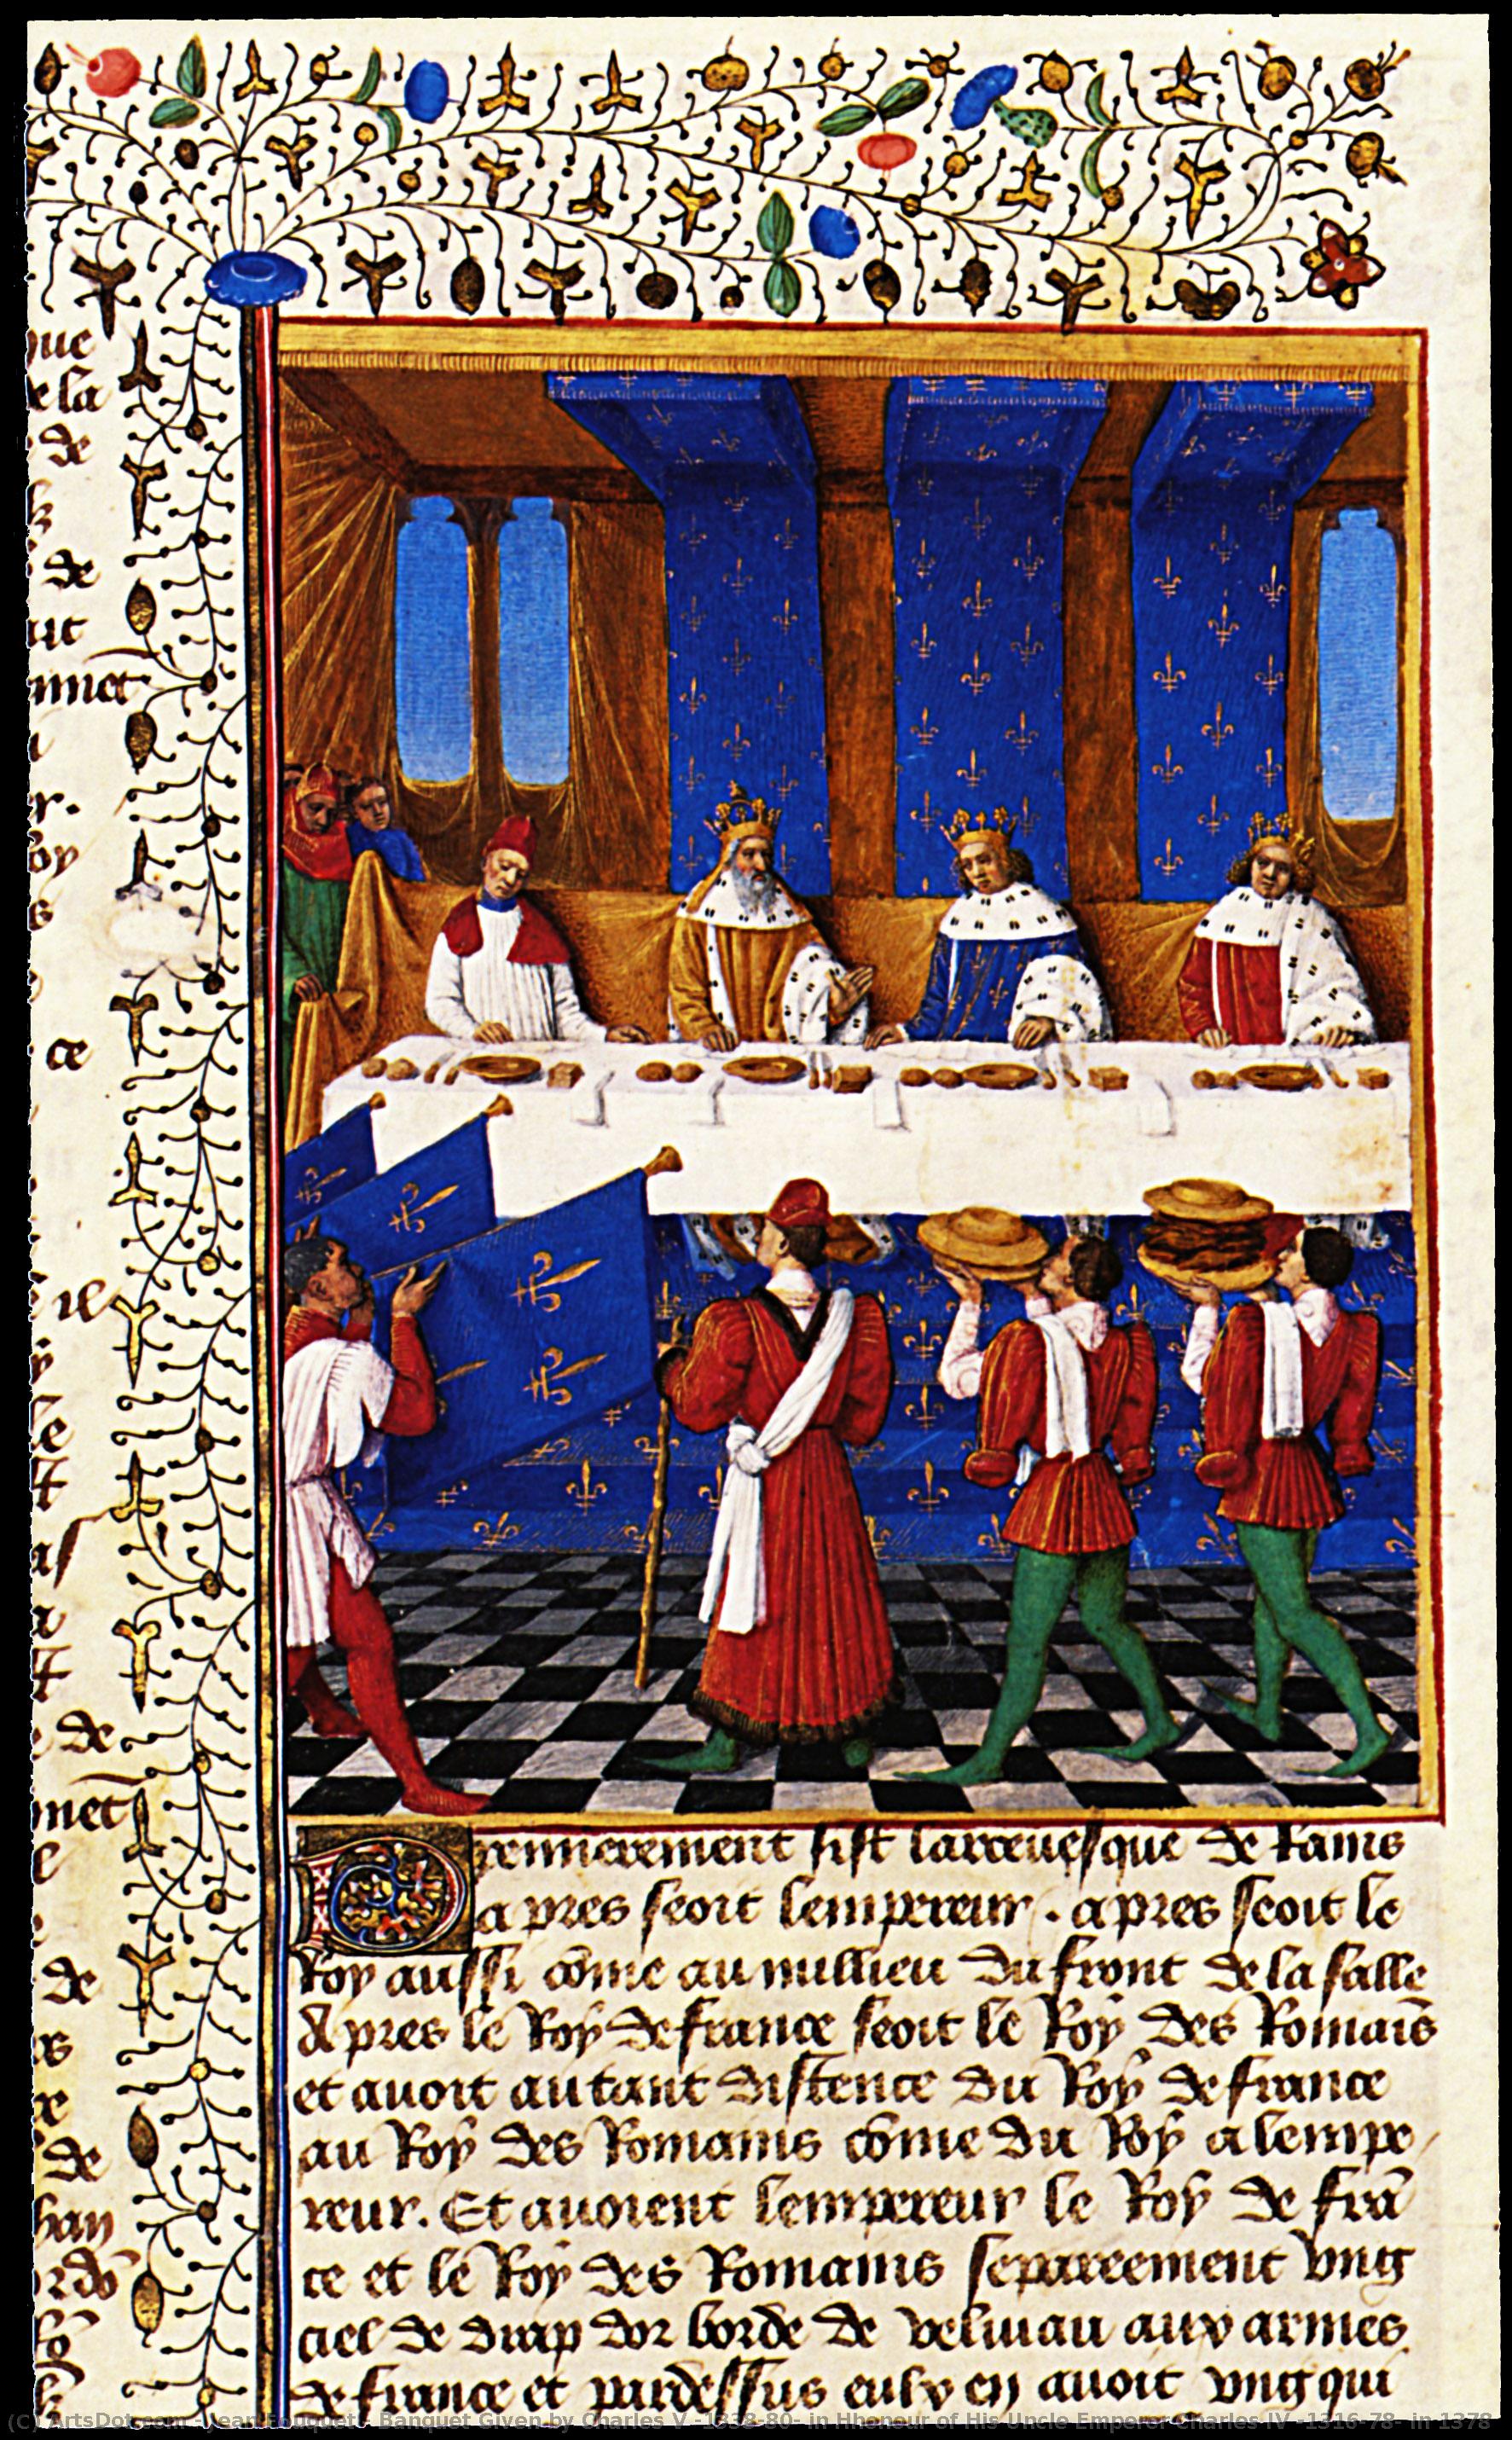 que
de la
de
de
mnet
ce
il
le
de
met
de
de
premierement sist larcevesque de Rains
apres seoit lempereur . apres seoit le
Roy aussi cõme au millieu du front de la salle
Apres le Roy de france seoit le Roy des Romais
et avoit autant distence du Roy de france
au Roy des Romains cõme du Roy a lempe
reur. Et avoient lempereur le Roy de frã
ce et le Roy des Romains separeement ung
ciel de drap dor borde de veluiau aux armes
de france et pardessus eulx en avoit ung qui
(C) ArtsDot.com - Jean Fouquet - Banquet Given by Charles V -1338-80- in Hhonour of His Uncle Emperor Charles IV -1316-78- in 1378